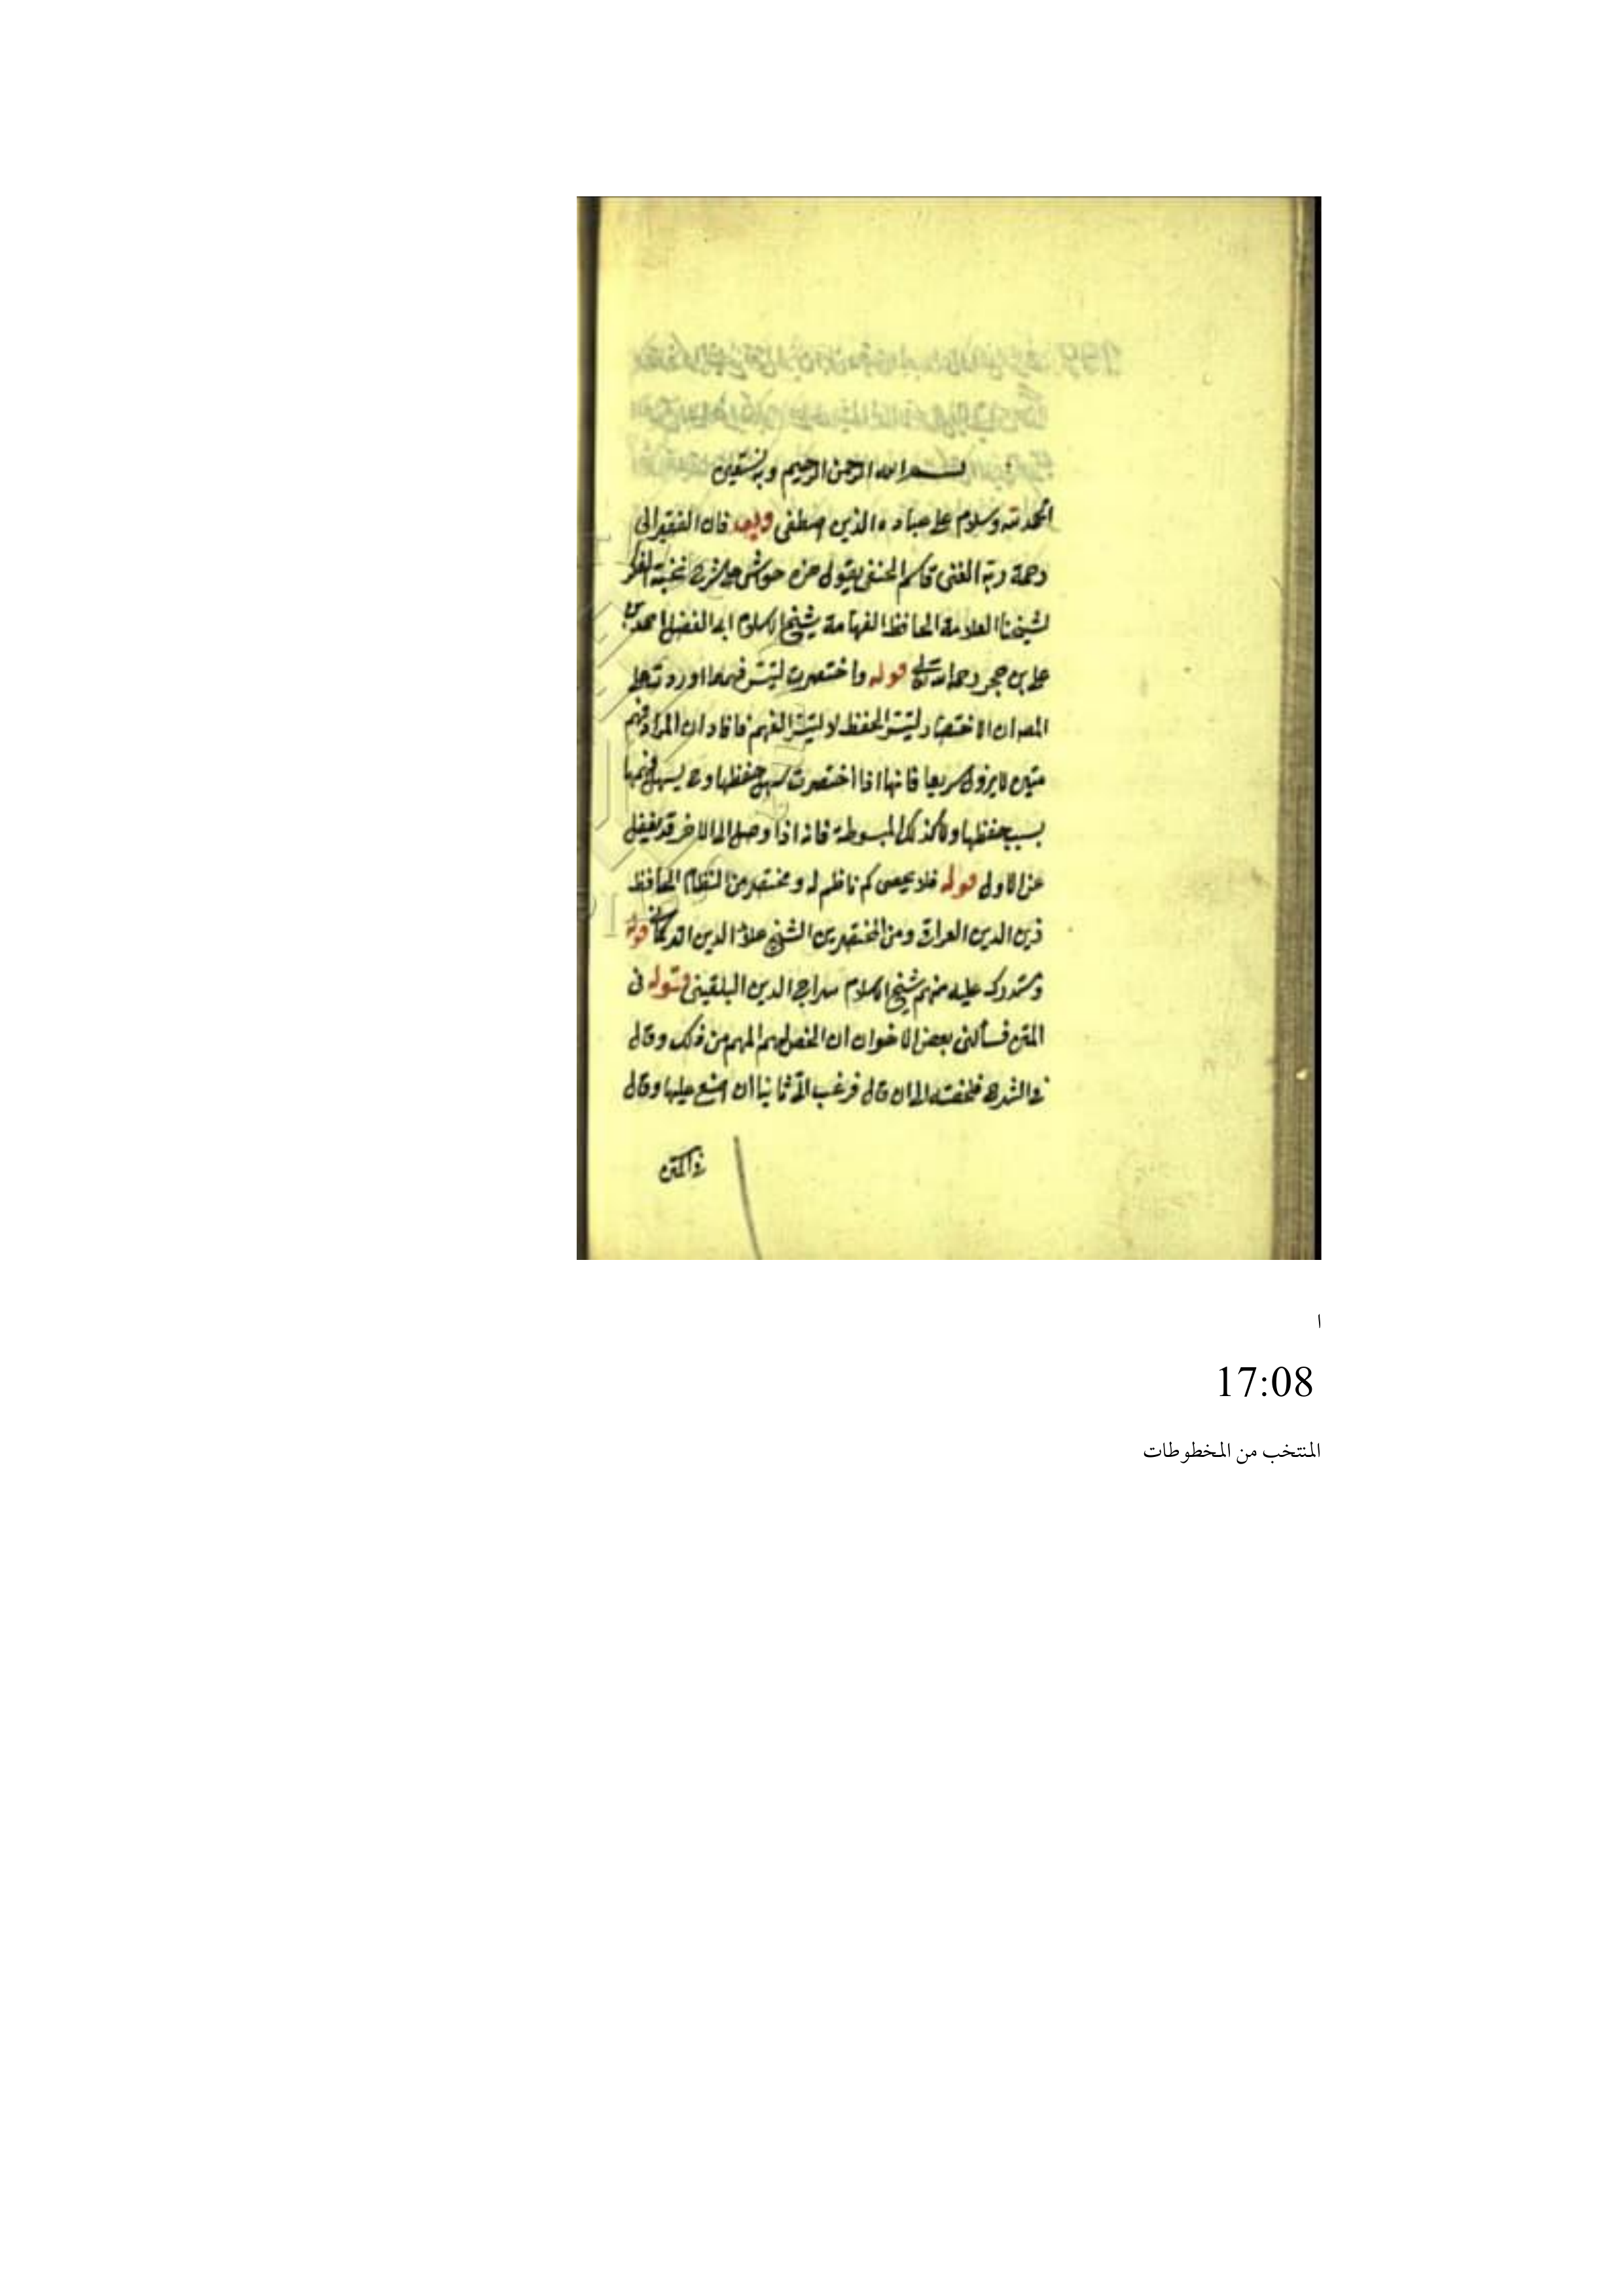 بسم الله الرحمن الرحيم وبه نستعين
الحمد لله وسلام على عباده الذين اصطفى وبعد فان الفقير الى
رحمة ربه الغنى قاسم الحنفى يقول هذه حواشى على شرح نخبة الفكر
لشيخنا العلامة الحافظ الفهامة شيخ الاسلام ابى الفضل احمد بن
على بن حجر رحمه الله تعالى قوله واختصرت ليتيسر فهمها اورد على
المص ان الاختصار ليتيسر الحفظ لا ليتيسر الفهم فافاد ان المراد فهم
متين لا يزول سريعا فانها اذا اختصرت سهل حفظها وح يسهل فهمها
بسبب حفظها ولا كذلك المبسوطة فانه اذا وصل الى الاخر قد يغفل
عن الاول قوله فلا يحصى كم ناظم له ومختصر من النظام الحافظ
زين الدين العراقى ومن المختصرين الشيخ علاء الدين التركمانى قوله
ومستدرك عليه منهم شيخ الاسلام سراج الدين البلقينى قوله فى
المتن فسألنى بعض الاخوان ان الخص لهم المهم من ذلك وقال
فى الشرح فلخصته الى ان قال فرغب الىّ ثانيا ان اضع عليها وقال
فى المتن
ا
17:08
المنتخب من المخطوطات